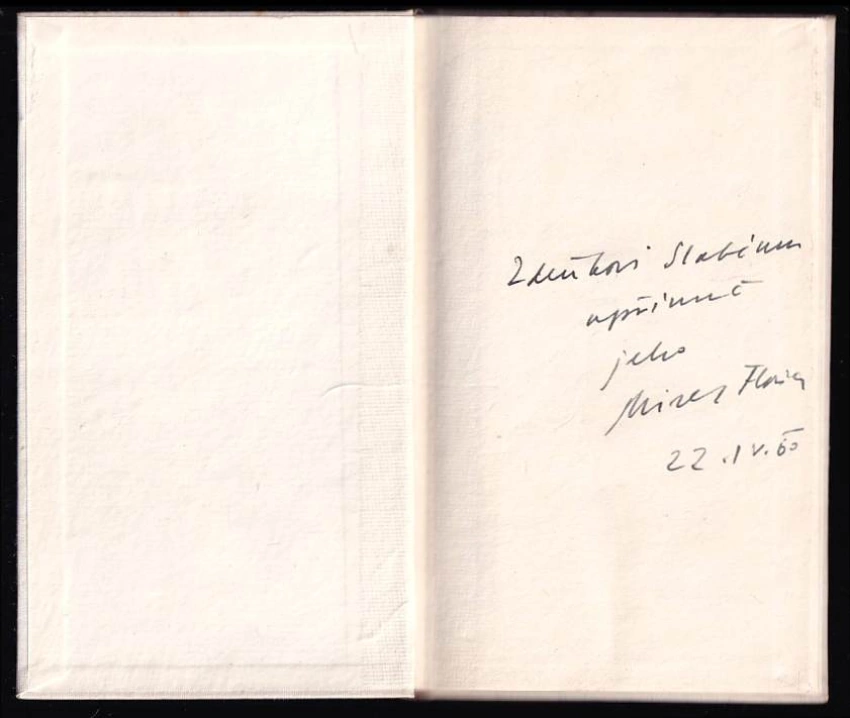 Zdeňkovi Slabému
upřímně
jeho
Mirek Florian
22.IV.60